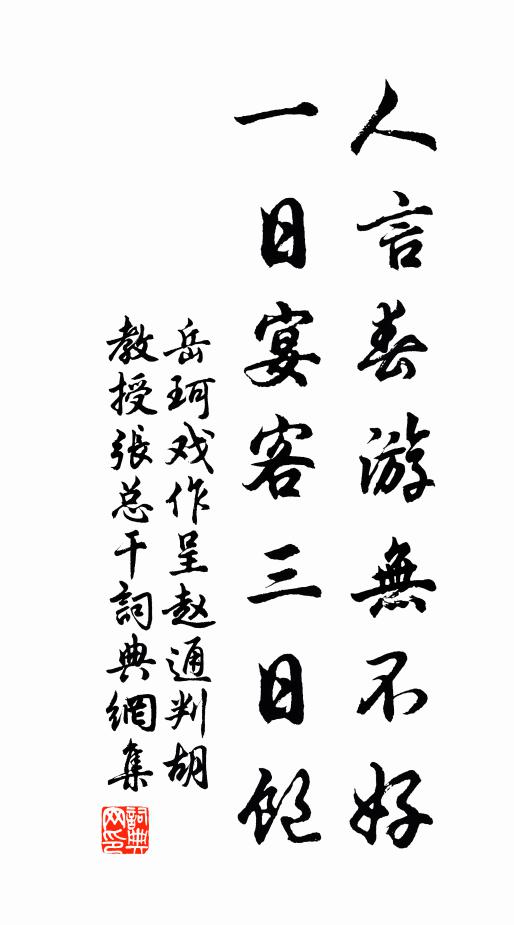 人言春游無不好
一日宴客三日饱
岳珂戏作呈赵通判胡
教授張总干詞典網集
詞典
网印